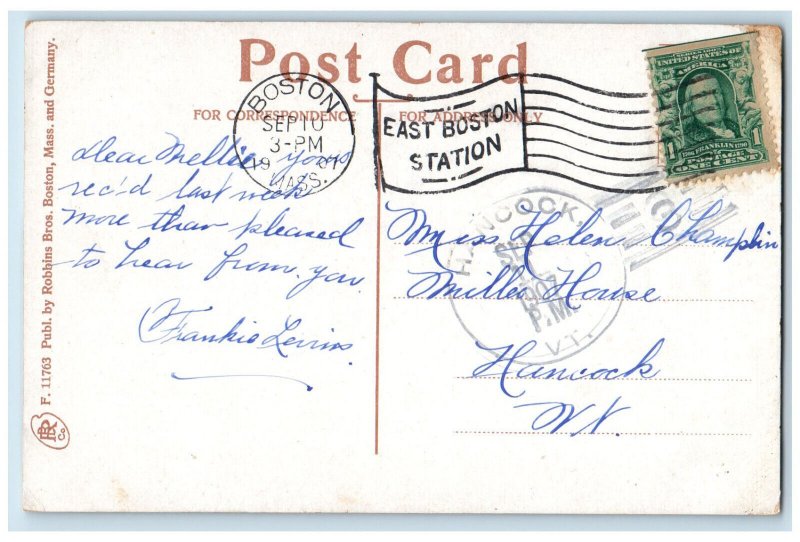 Post Card
FOR CORRESPONDENCE
FOR ADDRESS ONLY
BOSTON
SEP 10
3-PM
19 07
MASS.
EAST BOSTON
STATION
SERIES 1902
UNITED STATES OF AMERICA
1706 FRANKLIN 1790
POSTAGE
1 ONE CENT 1
HANCOCK,
SEP
1907
P.M.
VT.
Dear Mellie yours
rec'd last week
more than pleased
to hear from you
Frankie
Miss Helen Champlin
Miller House
Hancock
Vt.
F. 11763 Publ. by Robbins Bros. Boston, Mass. and Germany.
Co